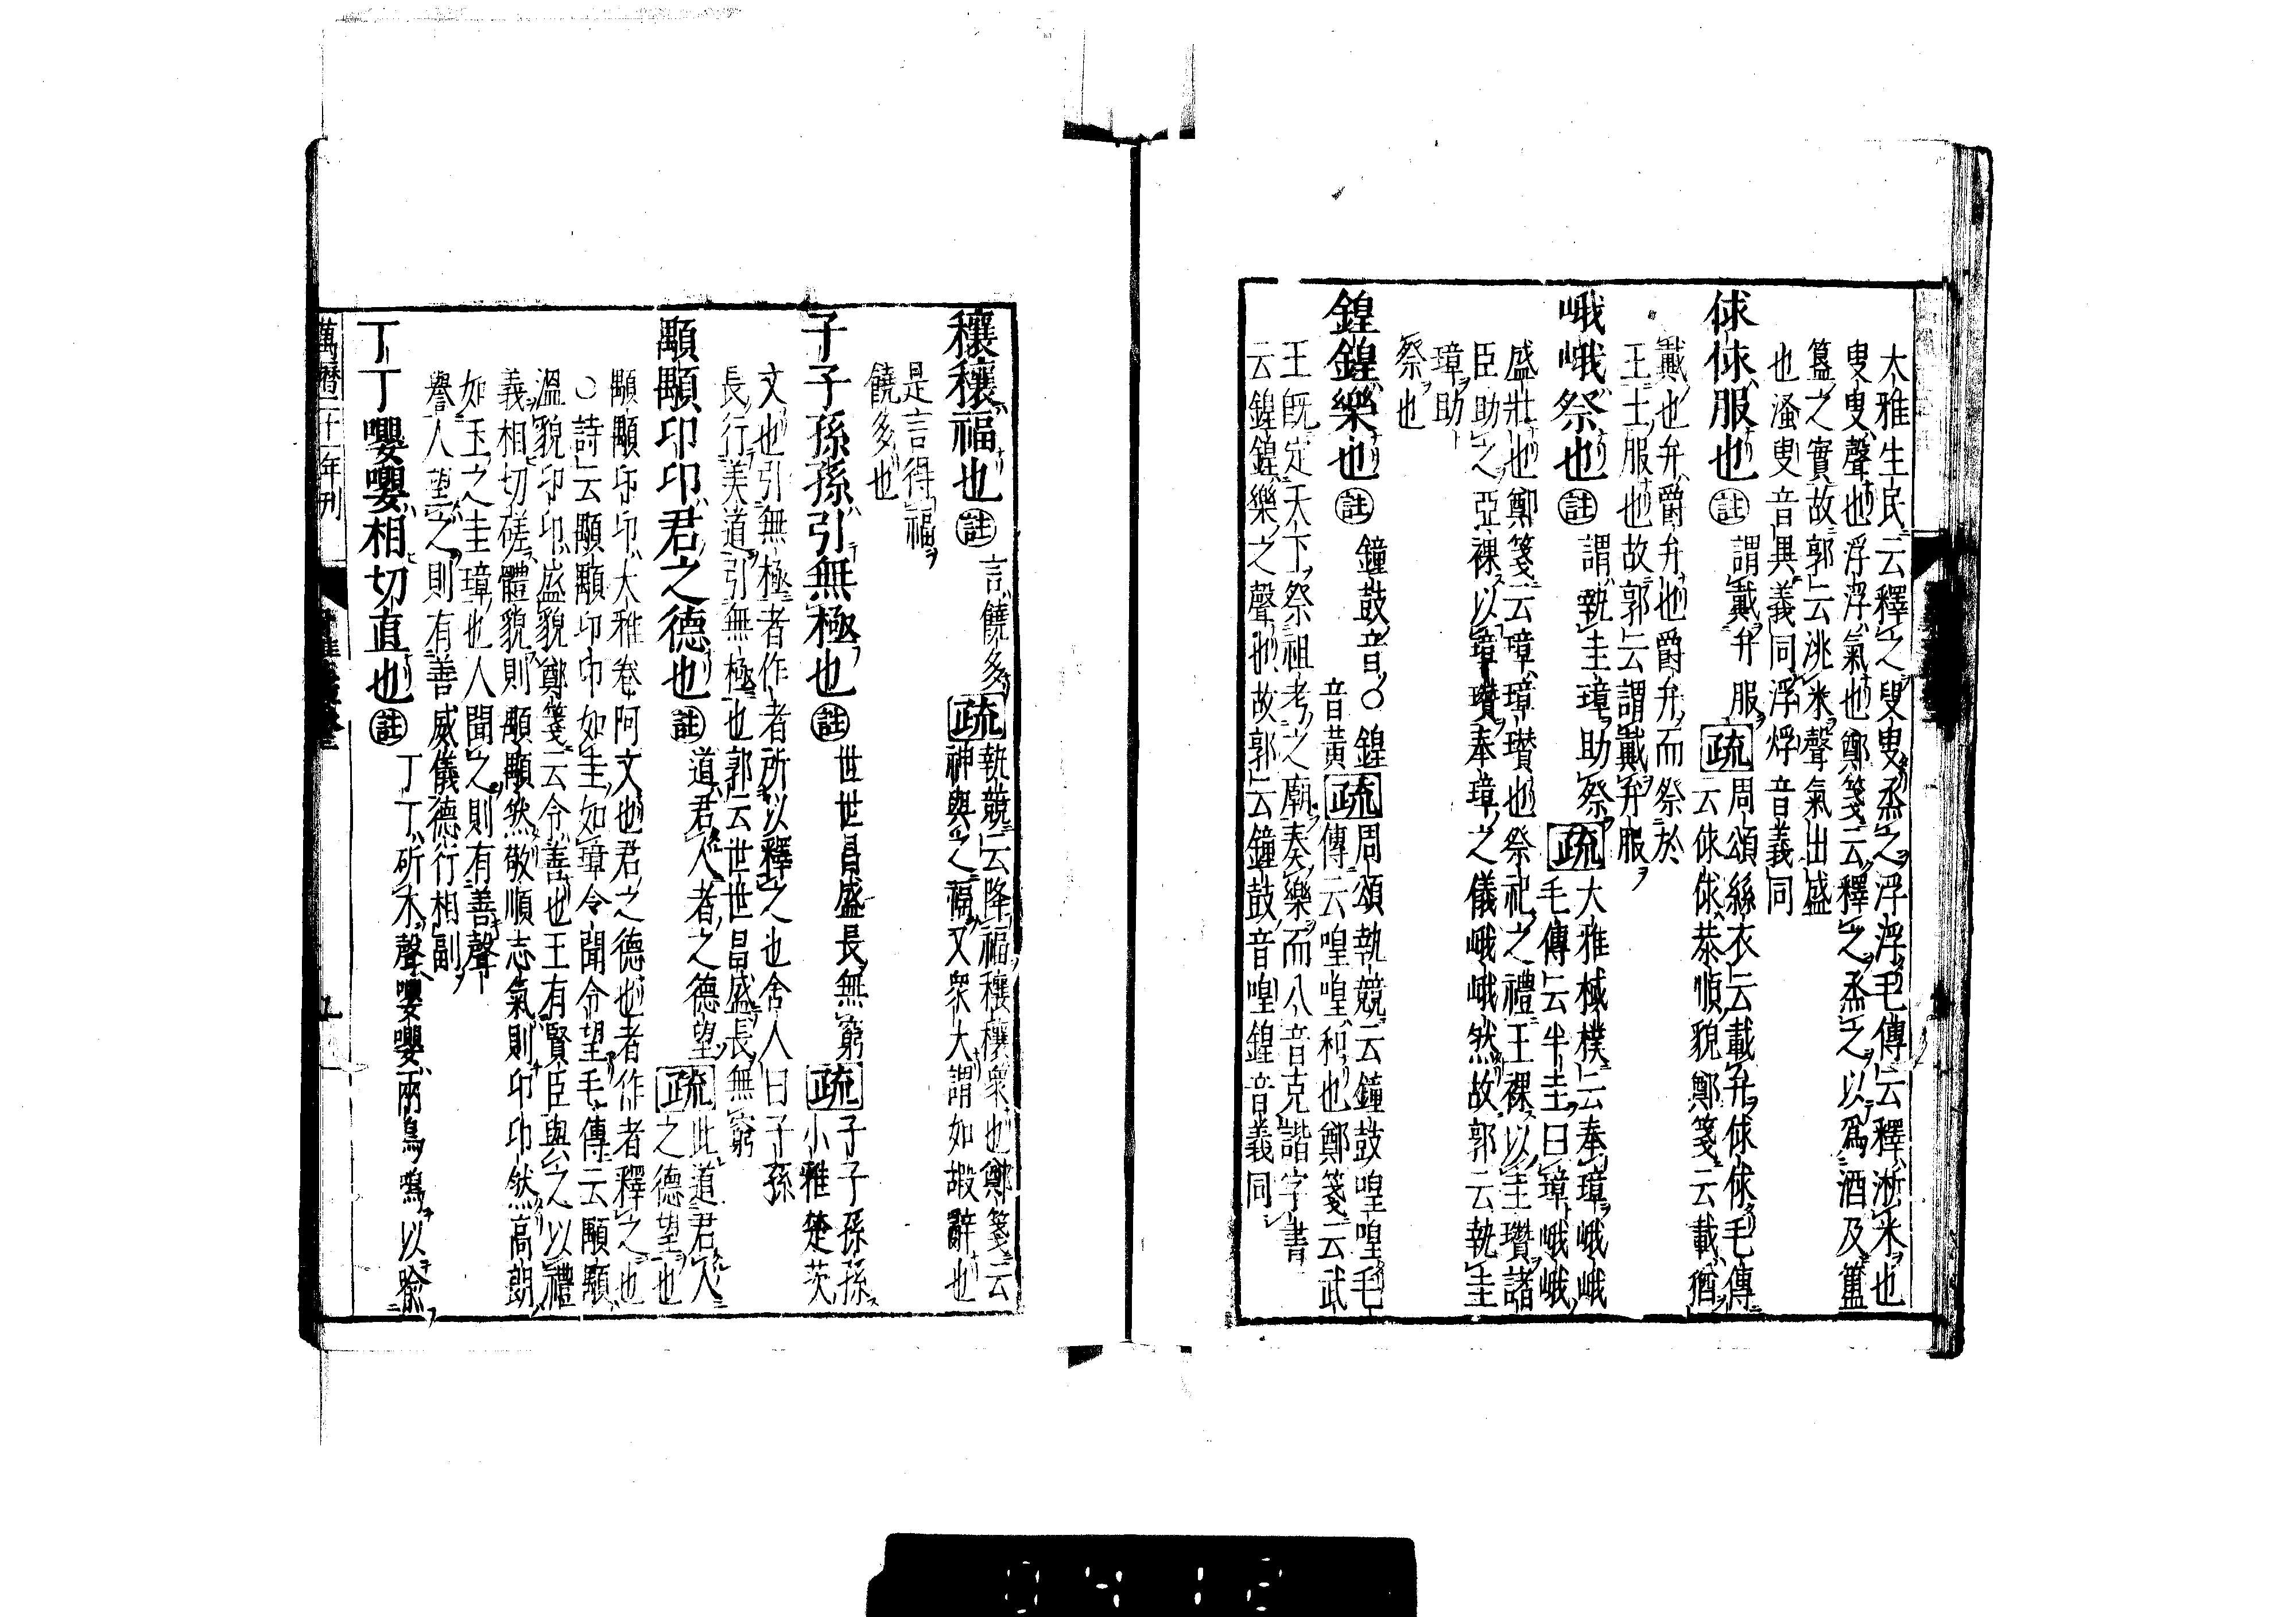 大雅生民云釋之叟叟烝之浮浮毛傳云釋淅米也
叟叟聲也浮浮氣也鄭箋云釋之烝之以爲酒及簠
簋之實故郭云洮米聲氣出盛
也溞叟音具義同浮烰音義同
俅俅服也註謂戴弁服疏周頌絲衣云載弁俅俅毛傳
云俅俅恭順貌鄭箋云載猶
戴也弁爵弁也爵弁而祭於
王士服也故郭云謂戴弁服
峨峨祭也註謂執圭璋助祭疏大雅棫樸云奉璋峨峨
毛傳云半圭曰璋峨峨
盛壯也鄭箋云璋璋瓚也祭祀之禮王祼以圭瓚諸
臣助之亞祼以璋瓚奉璋之儀峨峨然故郭云執圭
璋助
祭也
鍠鍠樂也註鐘鼓音○鍠
音黃疏周頌執競云鐘鼓喤喤毛
傳云喤喤和也鄭箋云武
王旣定天下祭祖考之廟奏樂而八音克諧字書
云鍠鍠樂之聲也故郭云鐘鼓音喤鍠音義同
穰穰福也註言饒多疏執競云降福穰穰衆也鄭箋云
神與之福又衆大謂如嘏辭也
是言得福
饒多也
子子孫孫引無極也註世世昌盛長無窮疏子子孫孫
小雅楚茨
文也引無極者作者所以釋之也舍人曰子孫
長行美道引無極也郭云世世昌盛長無窮
顒顒卬卬君之德也註道君人者之德望疏此道君人
之德望也
顒顒卬卬大雅卷阿文也君之德也者作者釋之也
○詩云顒顒卬卬如圭如璋令聞令望毛傳云顒顒
溫貌卬卬盛貌鄭箋云令善也王有賢臣與之以禮
義相切磋體貌則顒顒然敬順志氣則卬卬然高朗
如玉之圭璋也人聞之則有善聲
譽人望之則有善威儀德行相副
丁丁嚶嚶相切直也註丁丁斫木聲嚶嚶兩鳥鳴以喩
萬曆二十一年刊